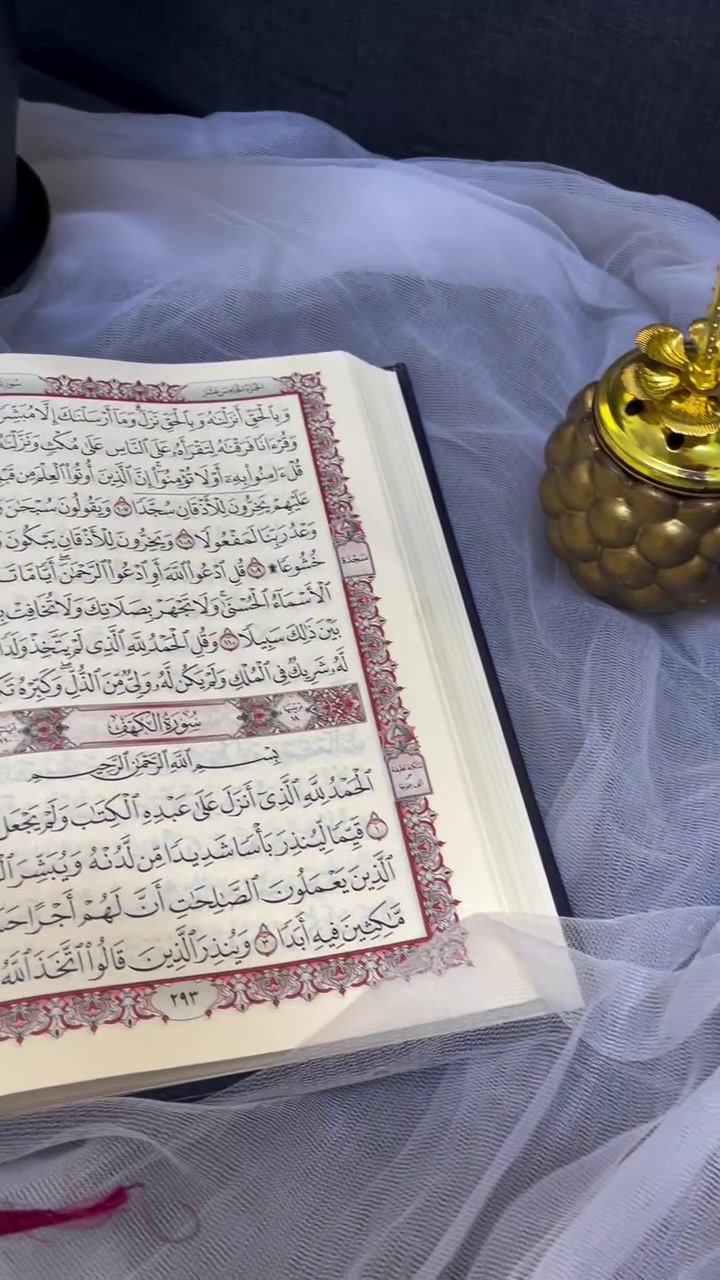 الجزء الخامس عشر
وَبِٱلۡحَقِّ أَنزَلۡنَٰهُ وَبِٱلۡحَقِّ نَزَلَۗ وَمَآ أَرۡسَلۡنَٰكَ إِلَّا مُبَشِّرٗا
وَقُرۡءَانٗا فَرَقۡنَٰهُ لِتَقۡرَأَهُۥ عَلَى ٱلنَّاسِ عَلَىٰ مُكۡثٖ وَنَزَّلۡنَٰهُ
قُلۡ ءَامِنُواْ بِهِۦٓ أَوۡ لَا تُؤۡمِنُوٓاْۚ إِنَّ ٱلَّذِينَ أُوتُواْ ٱلۡعِلۡمَ مِن قَبۡلِهِۦٓ
عَلَيۡهِمۡ يَخِرُّونَۤ لِلۡأَذۡقَانِۤ سُجَّدٗاۤ ١٠٧ وَيَقُولُونَ سُبۡحَٰنَ
وَعۡدُ رَبِّنَا لَمَفۡعُولٗا ١٠٨ وَيَخِرُّونَ لِلۡأَذۡقَانِ يَبۡكُونَ
خُشُوعٗا ۩ ١٠٩ قُلِ ٱدۡعُواْ ٱللَّهَ أَوِ ٱدۡعُواْ ٱلرَّحۡمَٰنَۖ أَيّٗا مَّا
ٱلۡأَسۡمَآءُ ٱلۡحُسۡنَىٰۚ وَلَا تَجۡهَرۡ بِصَلَاتِكَ وَلَا تُخَافِتۡ
بَيۡنَ ذَٰلِكَ سَبِيلٗا ١١٠ وَقُلِ ٱلۡحَمۡدُ لِلَّهِ ٱلَّذِي لَمۡ يَتَّخِذۡ وَلَدٗا
لَّهُۥ شَرِيكٞ فِي ٱلۡمُلۡكِ وَلَمۡ يَكُن لَّهُۥ وَلِيّٞ مِّنَ ٱلذُّلِّۖ وَكَبِّرۡهُ
سَجۡدَة
سُورَةُ الكَهۡفِ
بِسۡمِ ٱللَّهِ ٱلرَّحۡمَٰنِ ٱلرَّحِيمِ
ٱلۡحَمۡدُ لِلَّهِ ٱلَّذِيٓ أَنزَلَ عَلَىٰ عَبۡدِهِ ٱلۡكِتَٰبَ وَلَمۡ يَجۡعَل
١ قَيِّمٗا لِّيُنذِرَ بَأۡسٗا شَدِيدٗا مِّن لَّدُنۡهُ وَيُبَشِّرَ
ٱلَّذِينَ يَعۡمَلُونَ ٱلصَّٰلِحَٰتِ أَنَّ لَهُمۡ أَجۡرًا
مَّٰكِثِينَ فِيهِ أَبَدٗا ٣ وَيُنذِرَ ٱلَّذِينَ قَالُواْ ٱتَّخَذَ ٱللَّهُ
٢٩٣